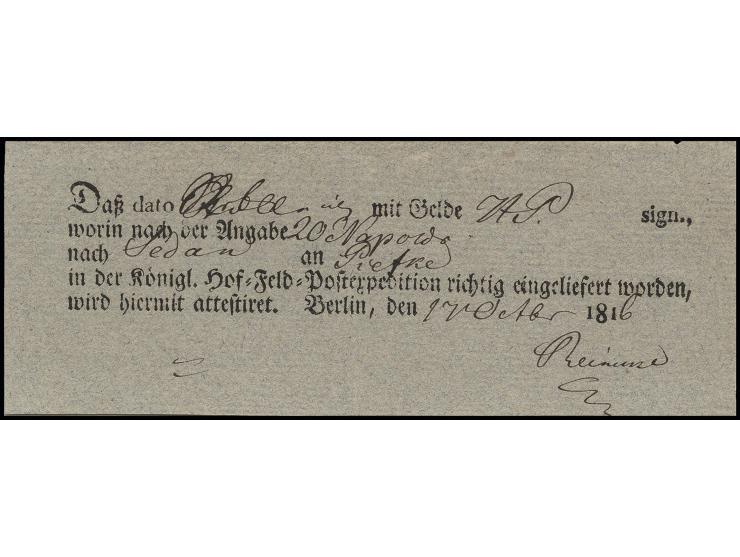 Daß dato mit Gelde H.P. sign.,
worin nach der Angabe 20 Napolds
nach Sedan an Piefke
in der Königl. Hof-Feld-Postexpedition richtig eingeliefert worden,
wird hiermit attestiret. Berlin, den 17 Octbr 1816